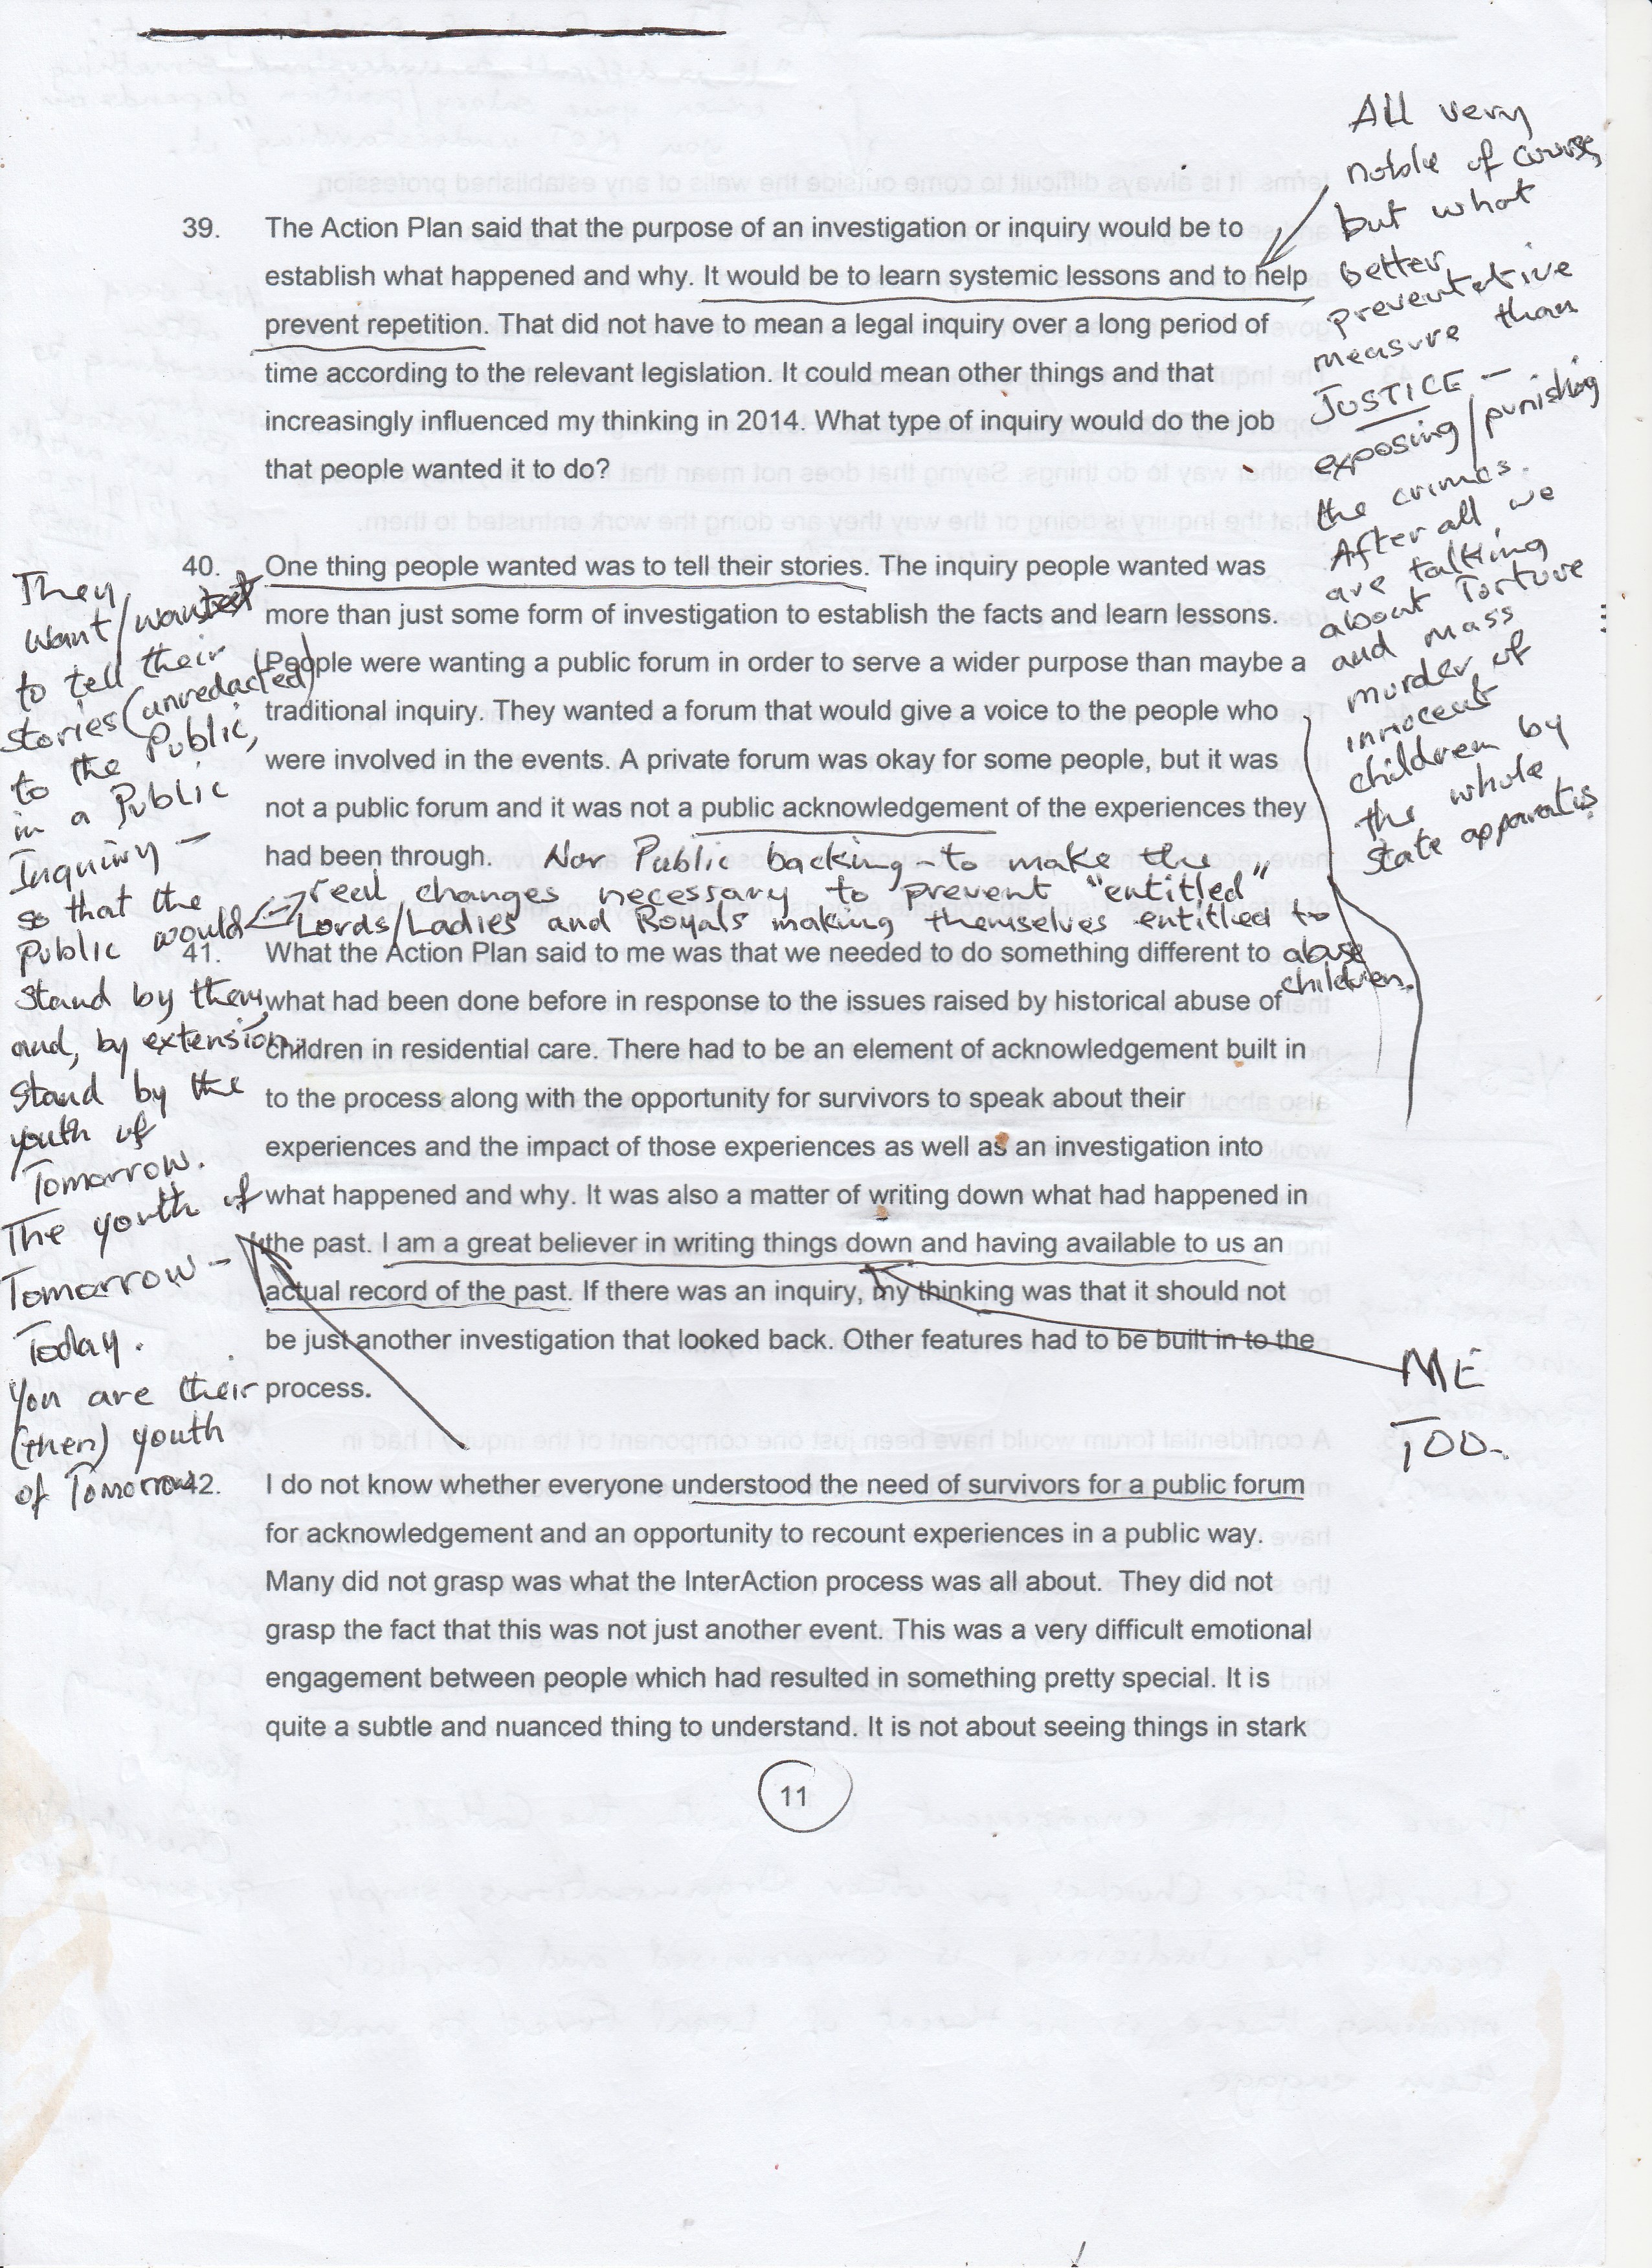 All very
noble of course,
but what
better
preventative
measure than
JUSTICE -
exposing/punishing
the crimes.
After all we
are talking
about Torture
and mass
murder of
innocent
children by
the whole
State apparatus.
39. The Action Plan said that the purpose of an investigation or inquiry would be to
establish what happened and why. It would be to learn systemic lessons and to help
prevent repetition. That did not have to mean a legal inquiry over a long period of
time according to the relevant legislation. It could mean other things and that
increasingly influenced my thinking in 2014. What type of inquiry would do the job
that people wanted it to do?
They
want/wanted
to tell their
stories (unredacted)
to the Public,
in a Public
Inquiry -
so that the
Public would
stand by them,
and, by extension,
stand by the
youth of
Tomorrow.
The youth of
Tomorrow -
Today.
You are their
(then) youth
of Tomorrow
40. One thing people wanted was to tell their stories. The inquiry people wanted was
more than just some form of investigation to establish the facts and learn lessons.
People were wanting a public forum in order to serve a wider purpose than maybe a
traditional inquiry. They wanted a forum that would give a voice to the people who
were involved in the events. A private forum was okay for some people, but it was
not a public forum and it was not a public acknowledgement of the experiences they
had been through. Nor Public backing - to make the
real changes necessary to prevent "entitled"
Lords/Ladies and Royals making themselves entitled to
abuse
children.
41. What the Action Plan said to me was that we needed to do something different to
what had been done before in response to the issues raised by historical abuse of
children in residential care. There had to be an element of acknowledgement built in
to the process along with the opportunity for survivors to speak about their
experiences and the impact of those experiences as well as an investigation into
what happened and why. It was also a matter of writing down what had happened in
the past. I am a great believer in writing things down and having available to us an
actual record of the past. If there was an inquiry, my thinking was that it should not
be just another investigation that looked back. Other features had to be built in to the
process.
ME
TOO.
42. I do not know whether everyone understood the need of survivors for a public forum
for acknowledgement and an opportunity to recount experiences in a public way.
Many did not grasp was what the InterAction process was all about. They did not
grasp the fact that this was not just another event. This was a very difficult emotional
engagement between people which had resulted in something pretty special. It is
quite a subtle and nuanced thing to understand. It is not about seeing things in stark
11